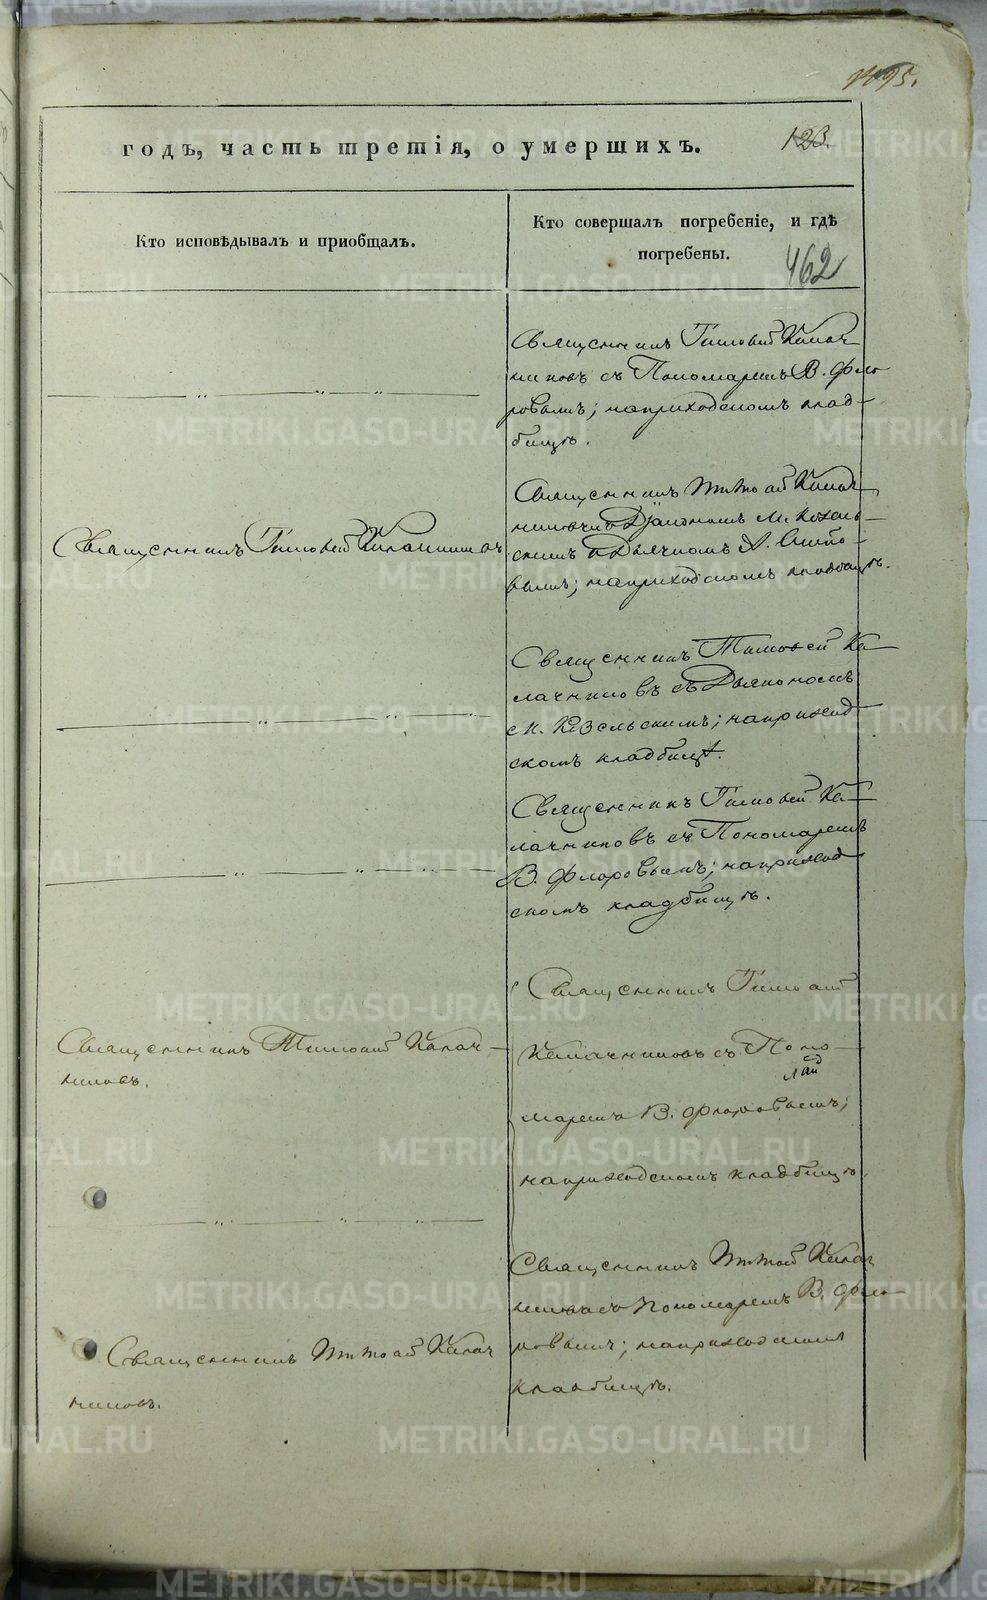 годъ, часть третія, о умершихъ.
123.
Кто исповѣдывалъ и приобщалъ.
Кто совершалъ погребеніе, и гдѣ
погребены.
462
Священникъ Тимофей Калач-
никовъ съ Пономаремъ В. Фло-
ровымъ; на приходскомъ клад-
бищѣ.
Священникъ Тимофей Калачниковъ.
Священникъ Тимофей Калач-
никовъ съ Дьякономъ М. Козель-
скимъ и Дьячкомъ А.
на приходскомъ кладбищѣ.
Священникъ Тимофей Ка-
лачниковъ съ Дьякономъ
М. Козельскимъ; на приход-
скомъ кладбищѣ.
Священникъ Тимофей Ка-
лачниковъ съ Пономаремъ
В. Флоровымъ; на приход-
скомъ кладбищѣ.
Священникъ Тимофей Калач-
никовъ.
Священникъ Тимофей
Калачниковъ съ Поно-
маремъ В. Флоровымъ;
на приходскомъ кладбищѣ.
Священникъ Тимофей Калач-
никовъ.
Священникъ Тимофей Калач-
никовъ съ Пономаремъ В. Фло-
ровымъ; на приходскомъ
кладбищѣ.
METRIKI.GASO-URAL.RU